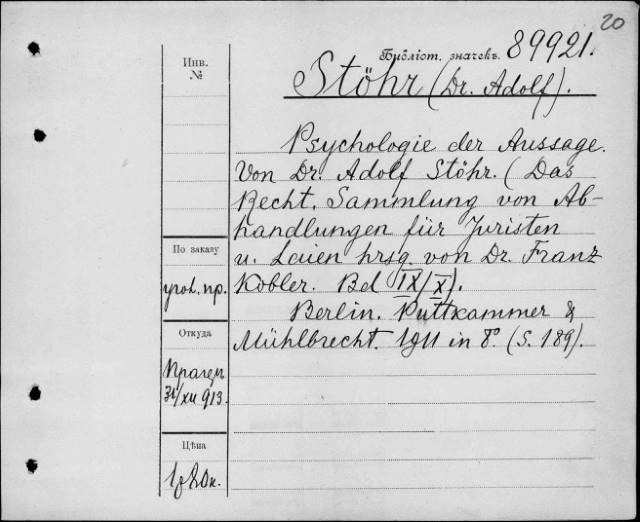 20
Библіот. значекъ. 89921.
Stöhr (Dr. Adolf).
Инв.
№
Psychologie der Aussage.
Von Dr. Adolf Stöhr. (Das
Recht. Sammlung von Ab-
handlungen für Juristen
u. Laien hrsg. von Dr. Franz
Kobler. Bd IX/X).
Berlin. Puttkammer &
Mühlbrecht. 1911 in 8º. (S. 189).
По заказу
угол. пр.
Откуда
31/XII 913.
Цѣна